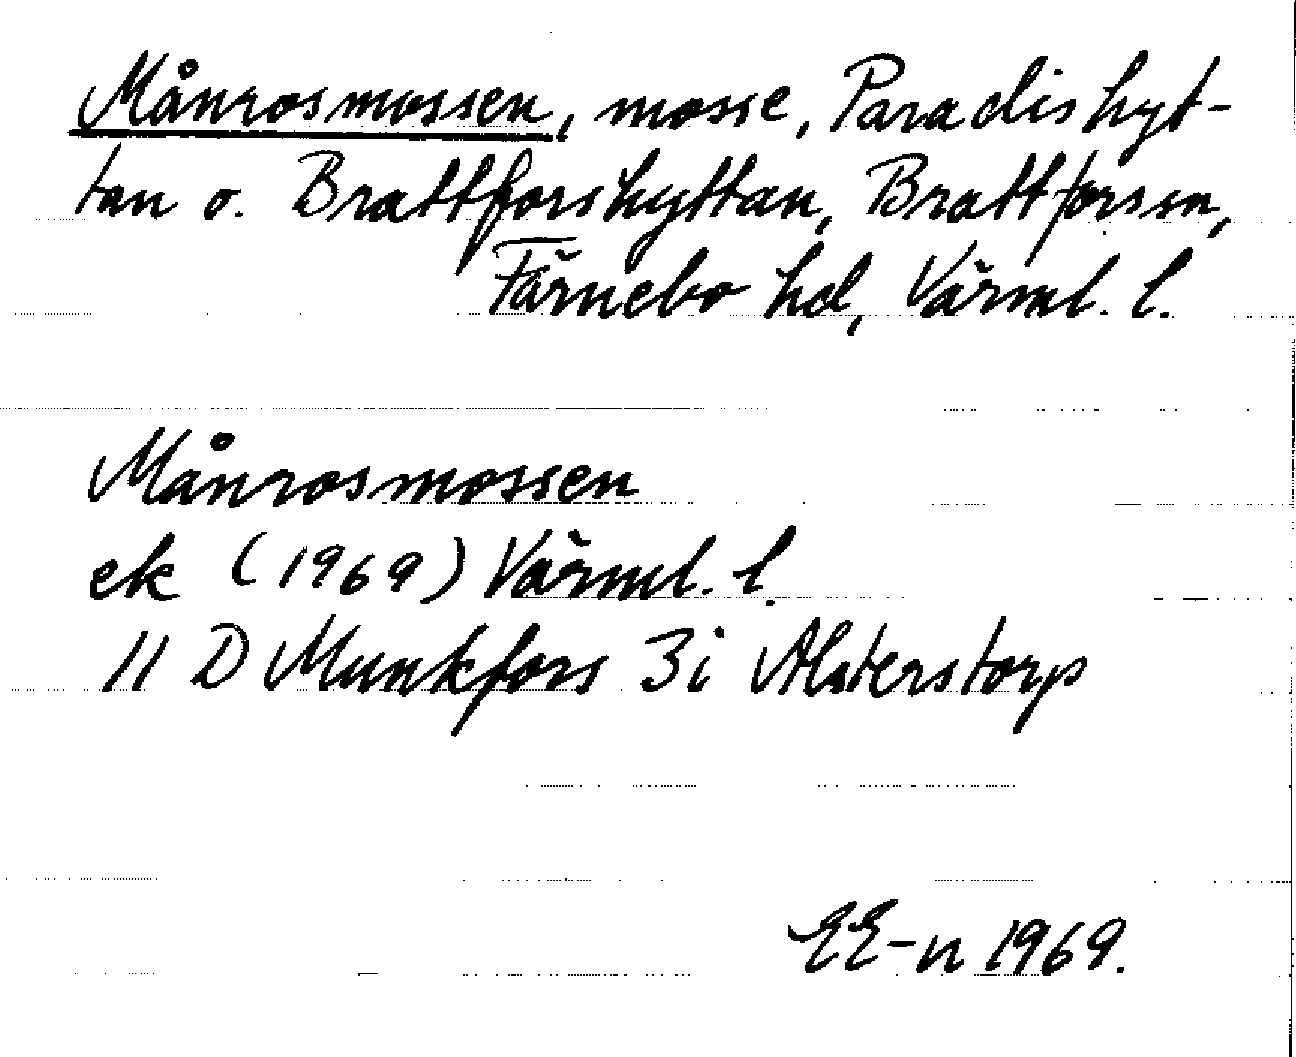 Månrosmossen, mosse, Paradishyt-
tan o. Brattforshyttan, Brattforsen,
Färnebo hd, Värml. l.
Månrosmossen
ek (1969) Värml. l.
11 D Munkfors 3i Alsterstorp
EE-n 1969.